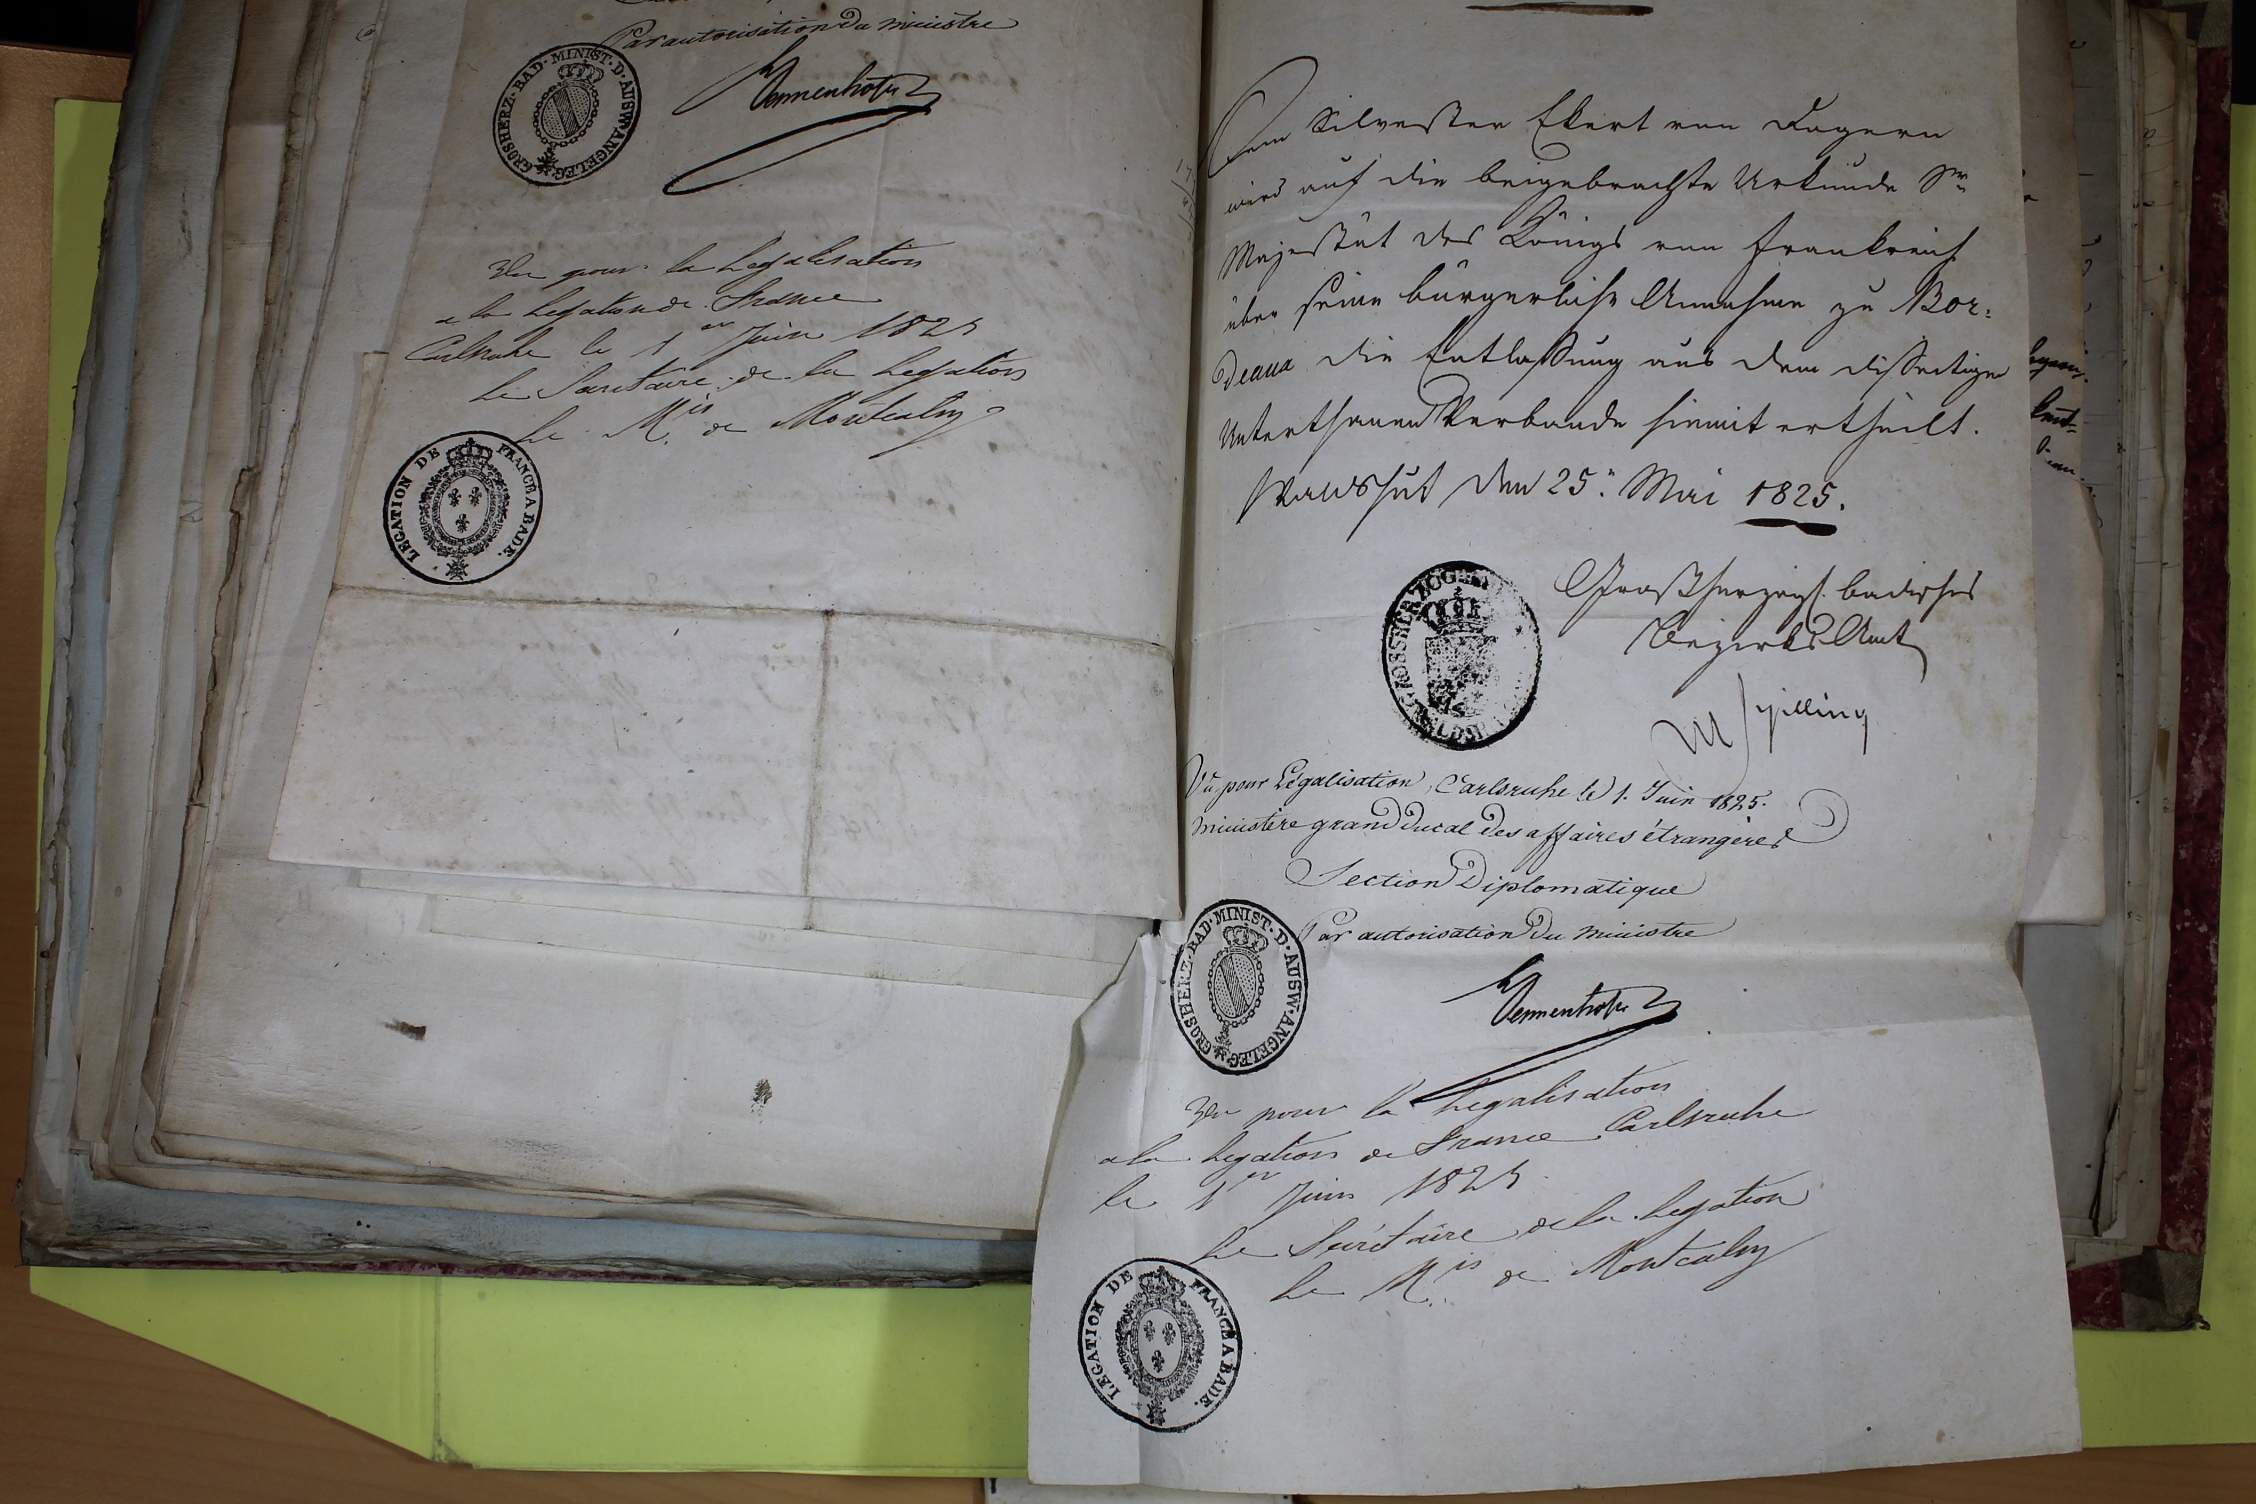 Par autorisation du ministre
GROSHERZ. BAD. MINIST. D. AUSW. ANGELEG.
Vu pour la Legalisation
a la Legation de France
Carlsruhe le 1er Juin 1825
Le Secretaire de la Legation
Le Mis de Montcalm
LEGATION DE FRANCE A BADE.
Dem Silvester Ekert von
wird auf die beigebrachte Urkunde Sr
Majestät des Königs von Frankreich
über seine bürgerliche Annahme zu Bor:
deaux die Entlassung aus dem disseitigen
Unterthanen Verbande hiemit ertheilt.
Waldshut den 25n Mai 1825.
GROSSHERZOG
Großherzogl. badisches
Bezirks Amt
Schilling
Vu pour Légalisation, Carlsruhe le 1. Juin 1825.
Ministère grand ducal des affaires étrangères
Section Diplomatique
Par autorisation du ministre
GROSHERZ. BAD. MINIST. D. AUSW. ANGELEG.
Vu pour la Legalisation
a la Legation de France Carlsruhe
le 1er Juin 1825
Le Secrétaire de la Legation
Le Mis de Montcalm
LEGATION DE FRANCE A BADE.